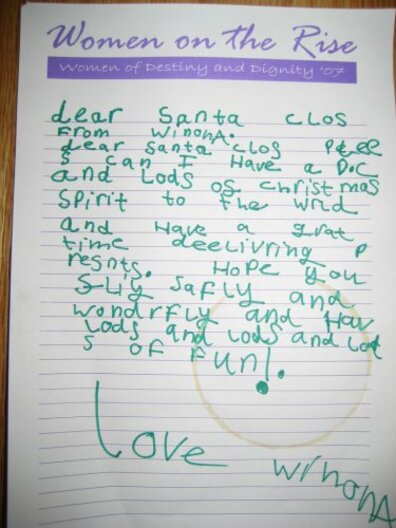 Women on the Rise
Women of Destiny and Dignity '07
dear Santa clos
From winonA.
dear santa clos pleee
s can I Have a D.C
and Lods os christmas
spirit to the wrld
and Have a grat
time deelivring p
resnts. Hope you
safly and
wonderfly and Hav
Lods and Lods and Lod
s of Fun!.
Love winonA